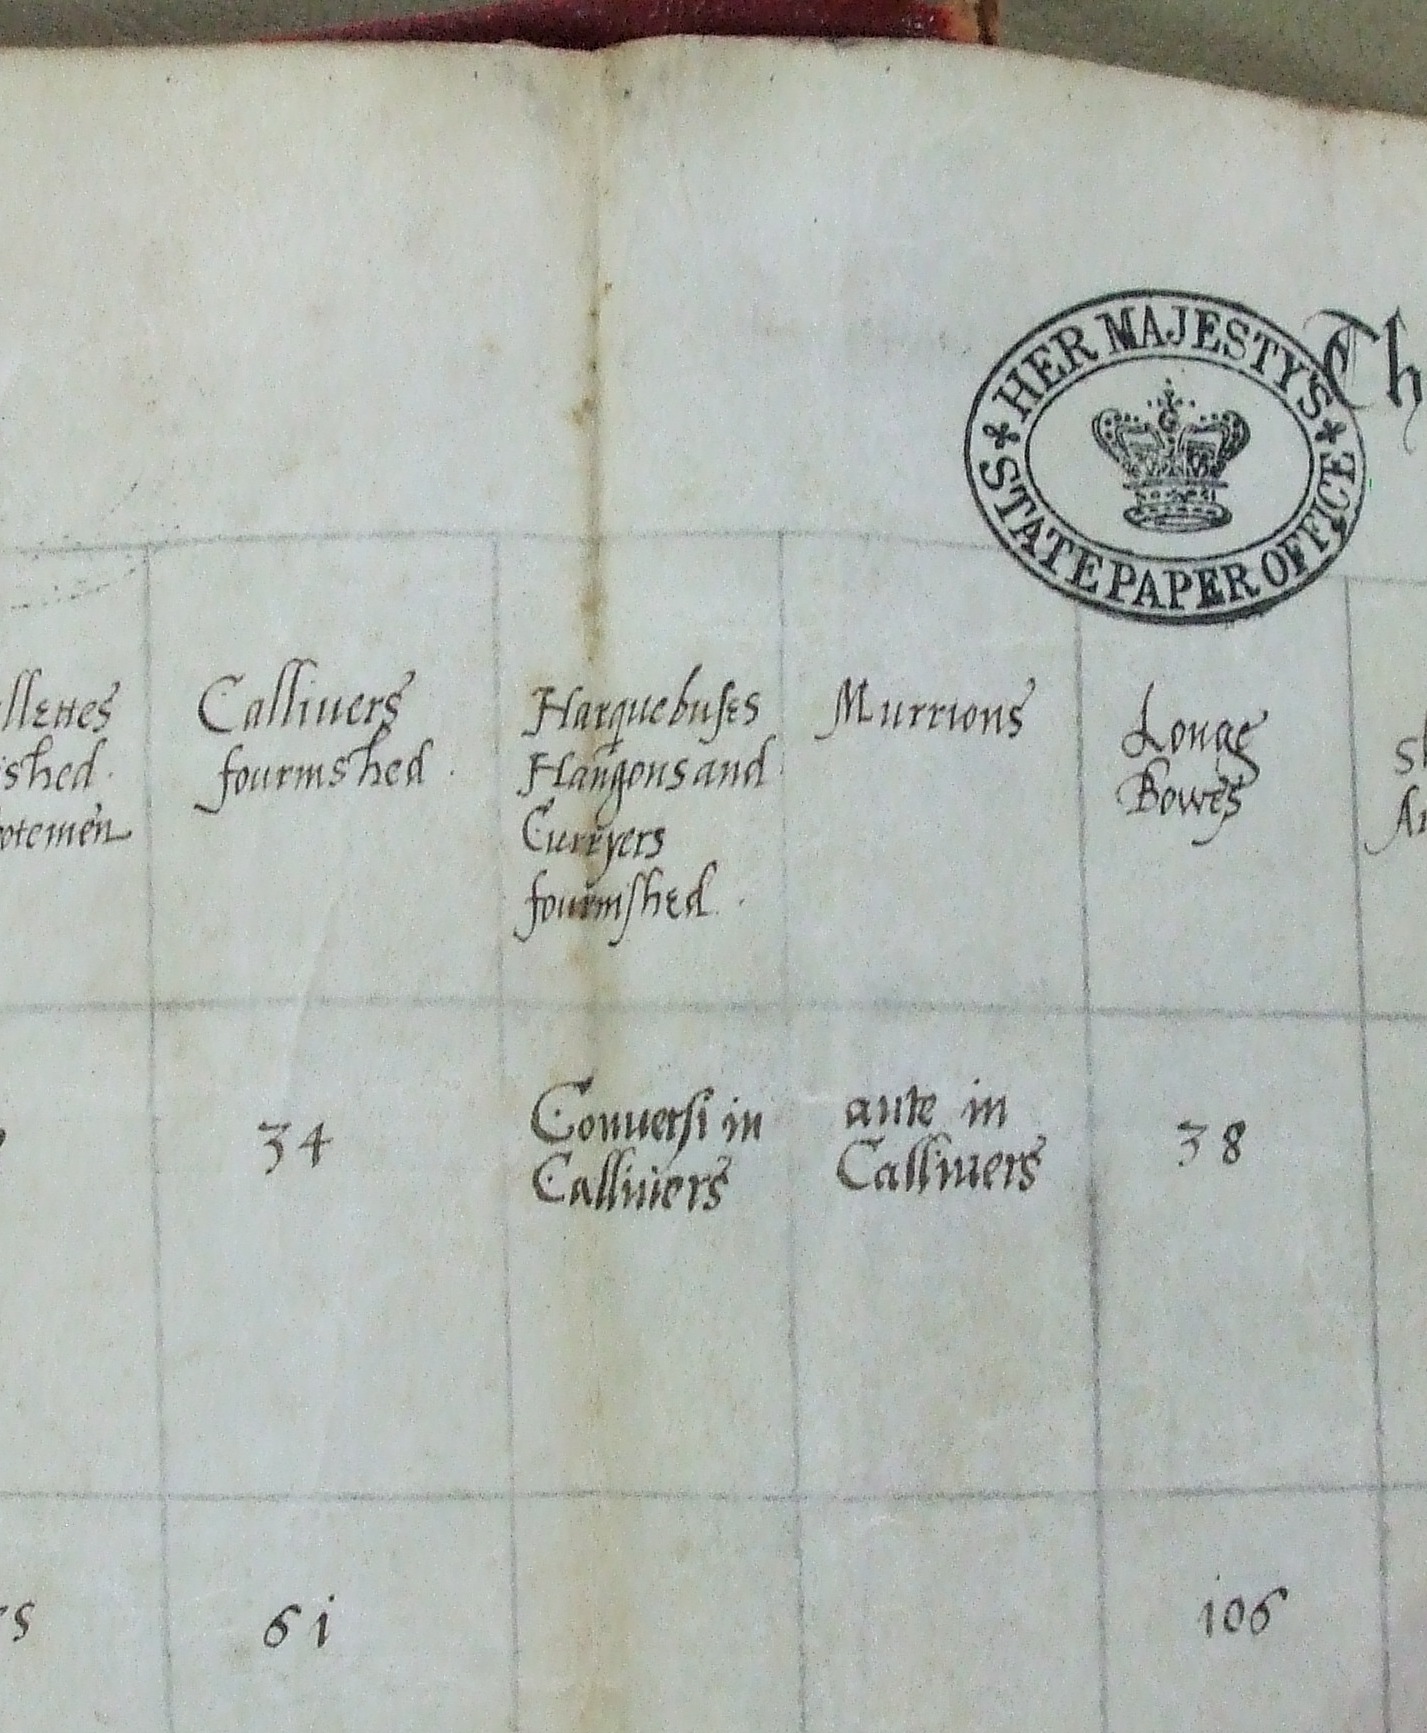 HER MAJESTYS
STATE PAPER OFFICE
Th
llettes
ished
otemen
Callivers
fournished
Harquebuses
Hargons and
Curryers
fournished
Murrions
Longe
Bowes
34
Conversi in
Callivers
ante in
Callivers
38
61
106